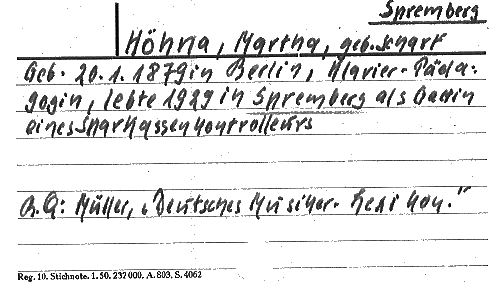 Spremberg
Höhna, Martha, geb. Scharf
Geb. 20.1.1879 in Berlin, Klavier-Päda-
gogin, lebte 1929 in Spremberg als Gattin
eines Sparkassenkontrolleurs
Müller, „Deutsches Musiker-Lexikon."
Reg. 10. Stichnote. 1. 50. 237 000. A. 803. S. 4062